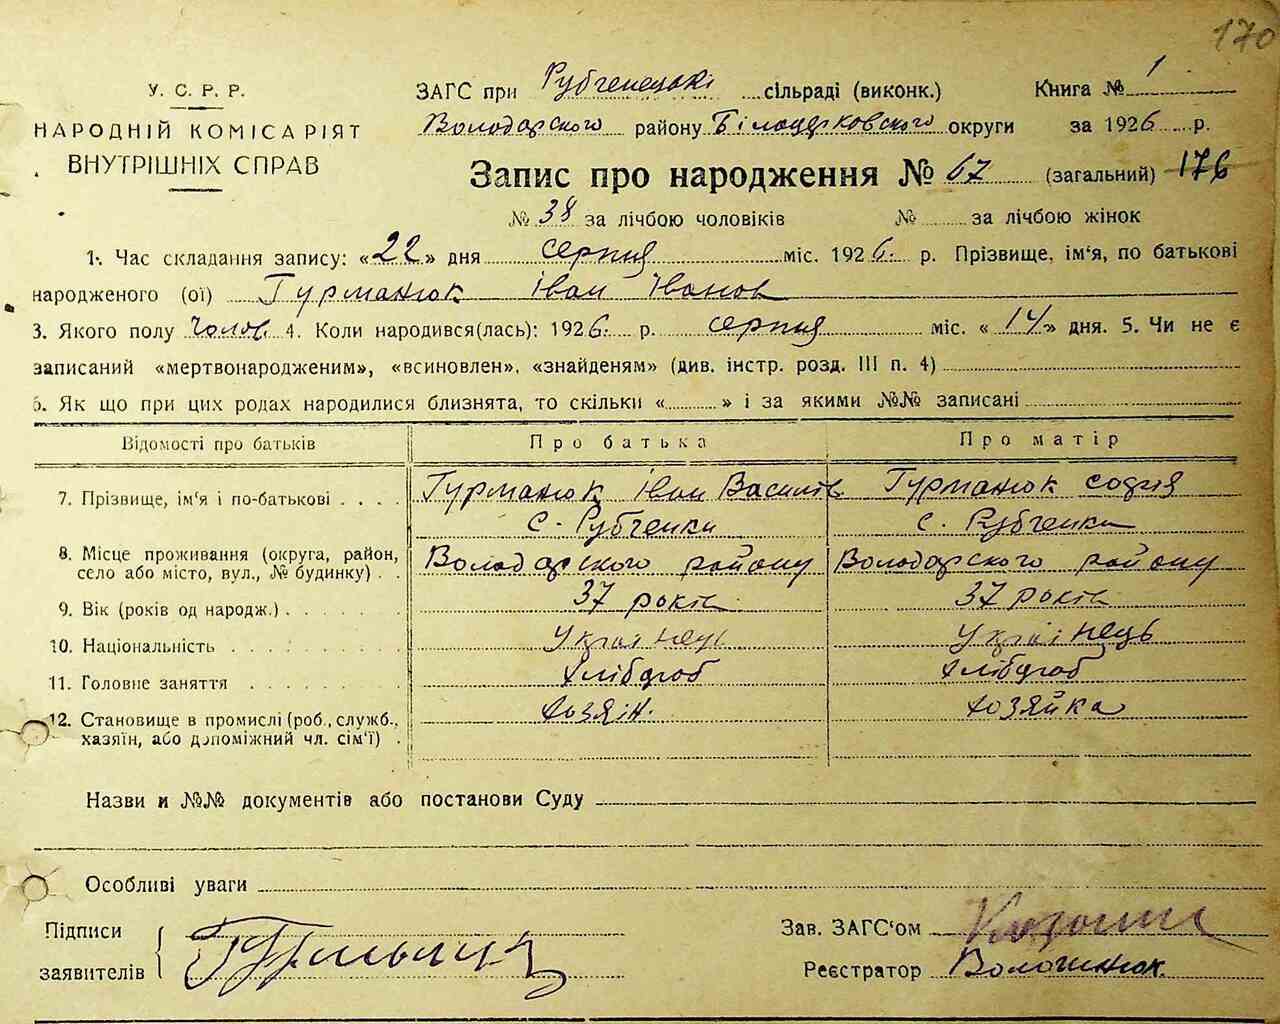 170
У. С. Р. Р.
НАРОДНІЙ КОМІСАРІЯТ
ВНУТРІШНІХ СПРАВ
ЗАГС при Рубченецькі сільраді (виконк.) Книга № 1
Володарського району Білоцерковского округи за 1926 р.
Запис про народження № 67 (загальний) 176
№ 38 за лічбою чоловіків № за лічбою жінок
1. Час складання запису: «22» дня серпня міс. 1926. р. Прізвище, ім'я, по батькові
народженого (ої) Гурманюк Іван Іванов
3. Якого полу Чолов 4. Коли народився(лась): 1926. р. серпня міс. «14» дня. 5. Чи не є
записаний «мертвонародженим», «всиновлен», «знайденям» (див. інстр. розд. III п. 4)
6. Як що при цих родах народилися близнята, то скільки « » і за якими №№ записані
Відомості про батьків Про батька Про матір
7. Прізвище, ім'я і по-батькові . . . . Гурманюк Іван Васильів Гурманюк Софія
с. Рубченки с. Рубченки
8. Місце проживання (округа, район, Володарского району Володарского району
село або місто, вул., № будинку) . .
9. Вік (років од народж.) . . . . . . 37 років 37 років
10. Національність . . . . . . . . . Українець Українець
11. Головне заняття . . . . . . . . Хлібороб Хлібороб
12. Становище в промислі (роб., служб., хозяін. хозяйка
хазяїн, або допоміжний чл. сім'ї) .
Назви и №№ документів або постанови Суду
Особливі уваги
Підписи
заявителів
Зав. ЗАГС'ом
Реєстратор Волошинюк.